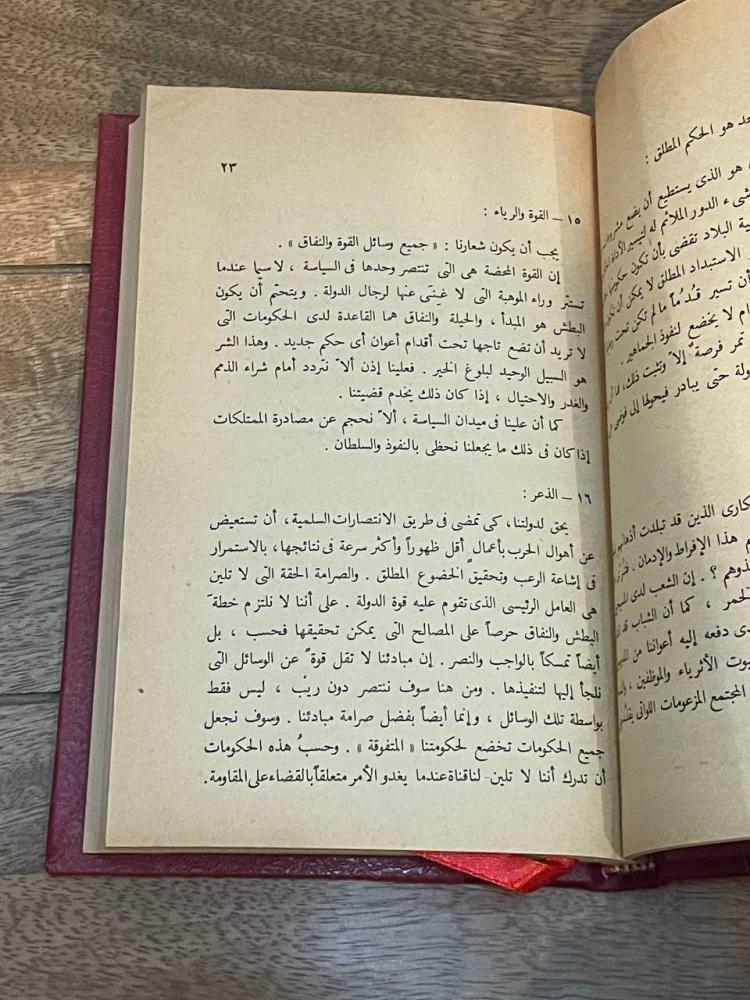 هو الحكم المطلق :
هو الذى يستطيع أن يضع
الدور الملائم له لتيسير
البلاد تقضى بأن تكون
الاستبداد المطلق لا يمكن أن
أن تسير قدُ ماً ما لم تكن تحت
لا يخضع لنفوذ الجماهير .
تمر فرصة ٌ إلا ّ وتثبت ذلك،
حتى يبادر فيحولها إلى فوضى
الذين قد تبلدت
هذا الإفراط والإدمان .
؟ . إن الشعب لدى
، كما أن الشباب قد
دفعه إليه أعواننا من
الأثرياء والموظفين ،
المجتمع المزعومات اللواتى
٢٣
١٥ – القوة والرياء :
يجب أن يكون شعارنا : « جميع وسائل القوة والنفاق » .
إن القوة المحضة هى التى تنتصر وحدها فى السياسة ، لا سيما عندما
تستتر وراء الموهبة التى لا غِنىَ عنها لرجال الدولة . ويتحتم أن يكون
البطش هو المبدأ ، والحيلة والنفاق هما القاعدة لدى الحكومات التى
لا تريد أن تضع تاجها تحت أقدام أعوان أى حكم جديد . وهذا الشر
هو السبيل الوحيد لبلوغ الخير . فعلينا إذن ألا ّ نتردد أمام شراء الذمم
والغدر والاحتيال ، إذا كان ذلك يخدم قضيتنا .
كما أن علينا فى ميدان السياسة ، ألا ّ نحجم عن مصادرة الممتلكات
إذا كان فى ذلك ما يجعلنا نحظى بالنفوذ والسلطان .
١٦ – الذعر :
يحق لدولتنا، كى تمضى فى طريق الانتصارات السلمية ، أن تستعيض
عن أهوال الحرب بأعمالٍ أقل ظهوراً وأكثر سرعة فى نتائجها، بالاستمرار
فى إشاعة الرعب وتحقيق الخضوع المطلق . والصرامة الحقة التى لا تلين
هى العامل الرئيسى الذى تقوم عليه قوة الدولة . على أننا لا نلتزم خطةَ
البطش والنفاق حرصاً على المصالح التى يمكن تحقيقها فحسب ، بل
أيضاً تمسكاً بالواجب والنصر . إن مبادئنا لا تقل قوة ً عن الوسائل التى
نلجأ إليها لتنفيذها . ومن هنا سوف ننتصر دون ريب ، ليس فقط
بواسطة تلك الوسائل ، وإنما أيضاً بفضل صرامة مبادئنا . وسوف نجعل
جميع الحكومات تخضع لحكومتنا « المتفوقة » . وحسبُ هذه الحكومات
أن تدرك أننا لا تلين- لنا قناة عندما يغدو الأمر متعلقاً بالقضاء على المقاومة .